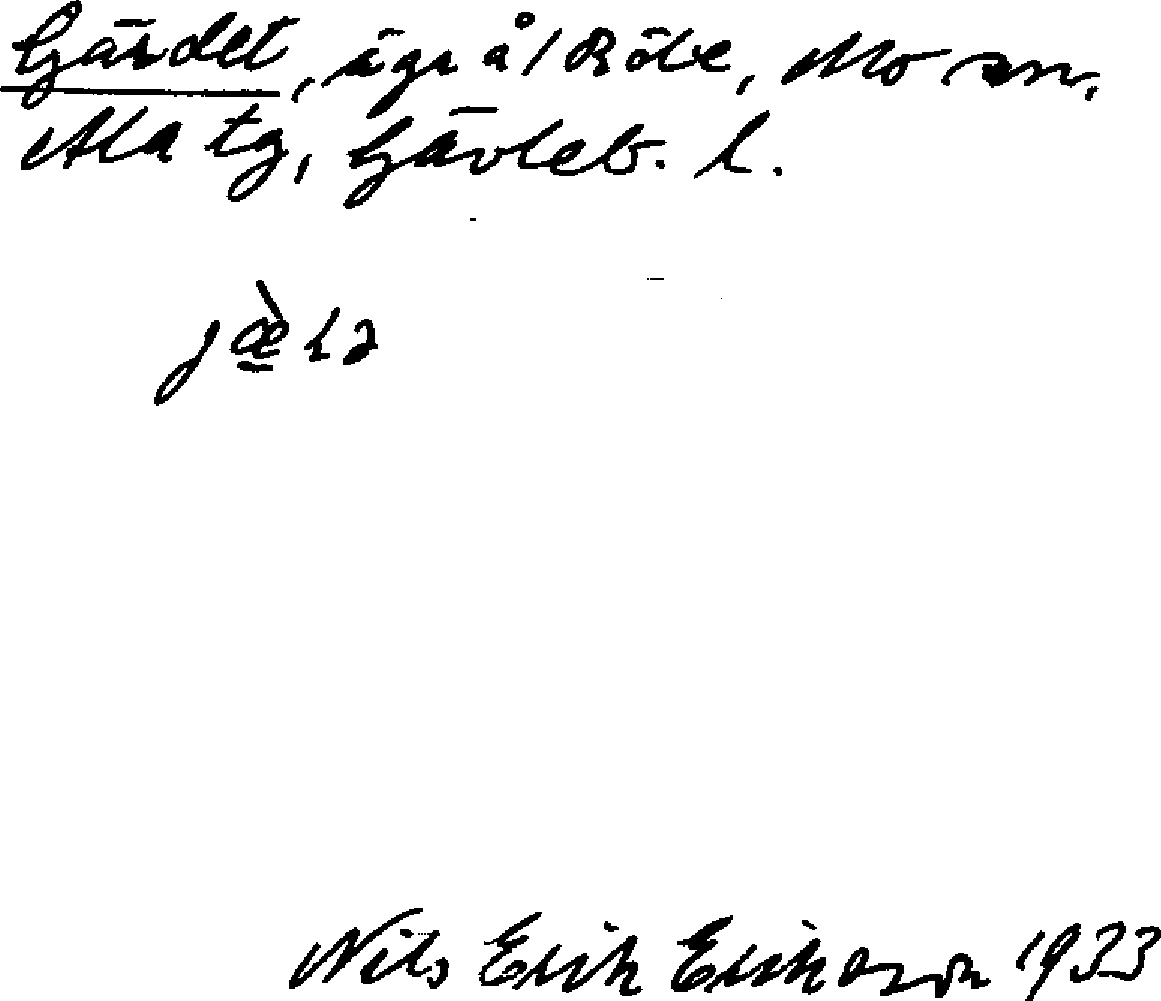 Gärdet, ägr å/ Röte, Mo sn,
Ala tg, Gävleb. l.
Nils Erik Erikson 1933